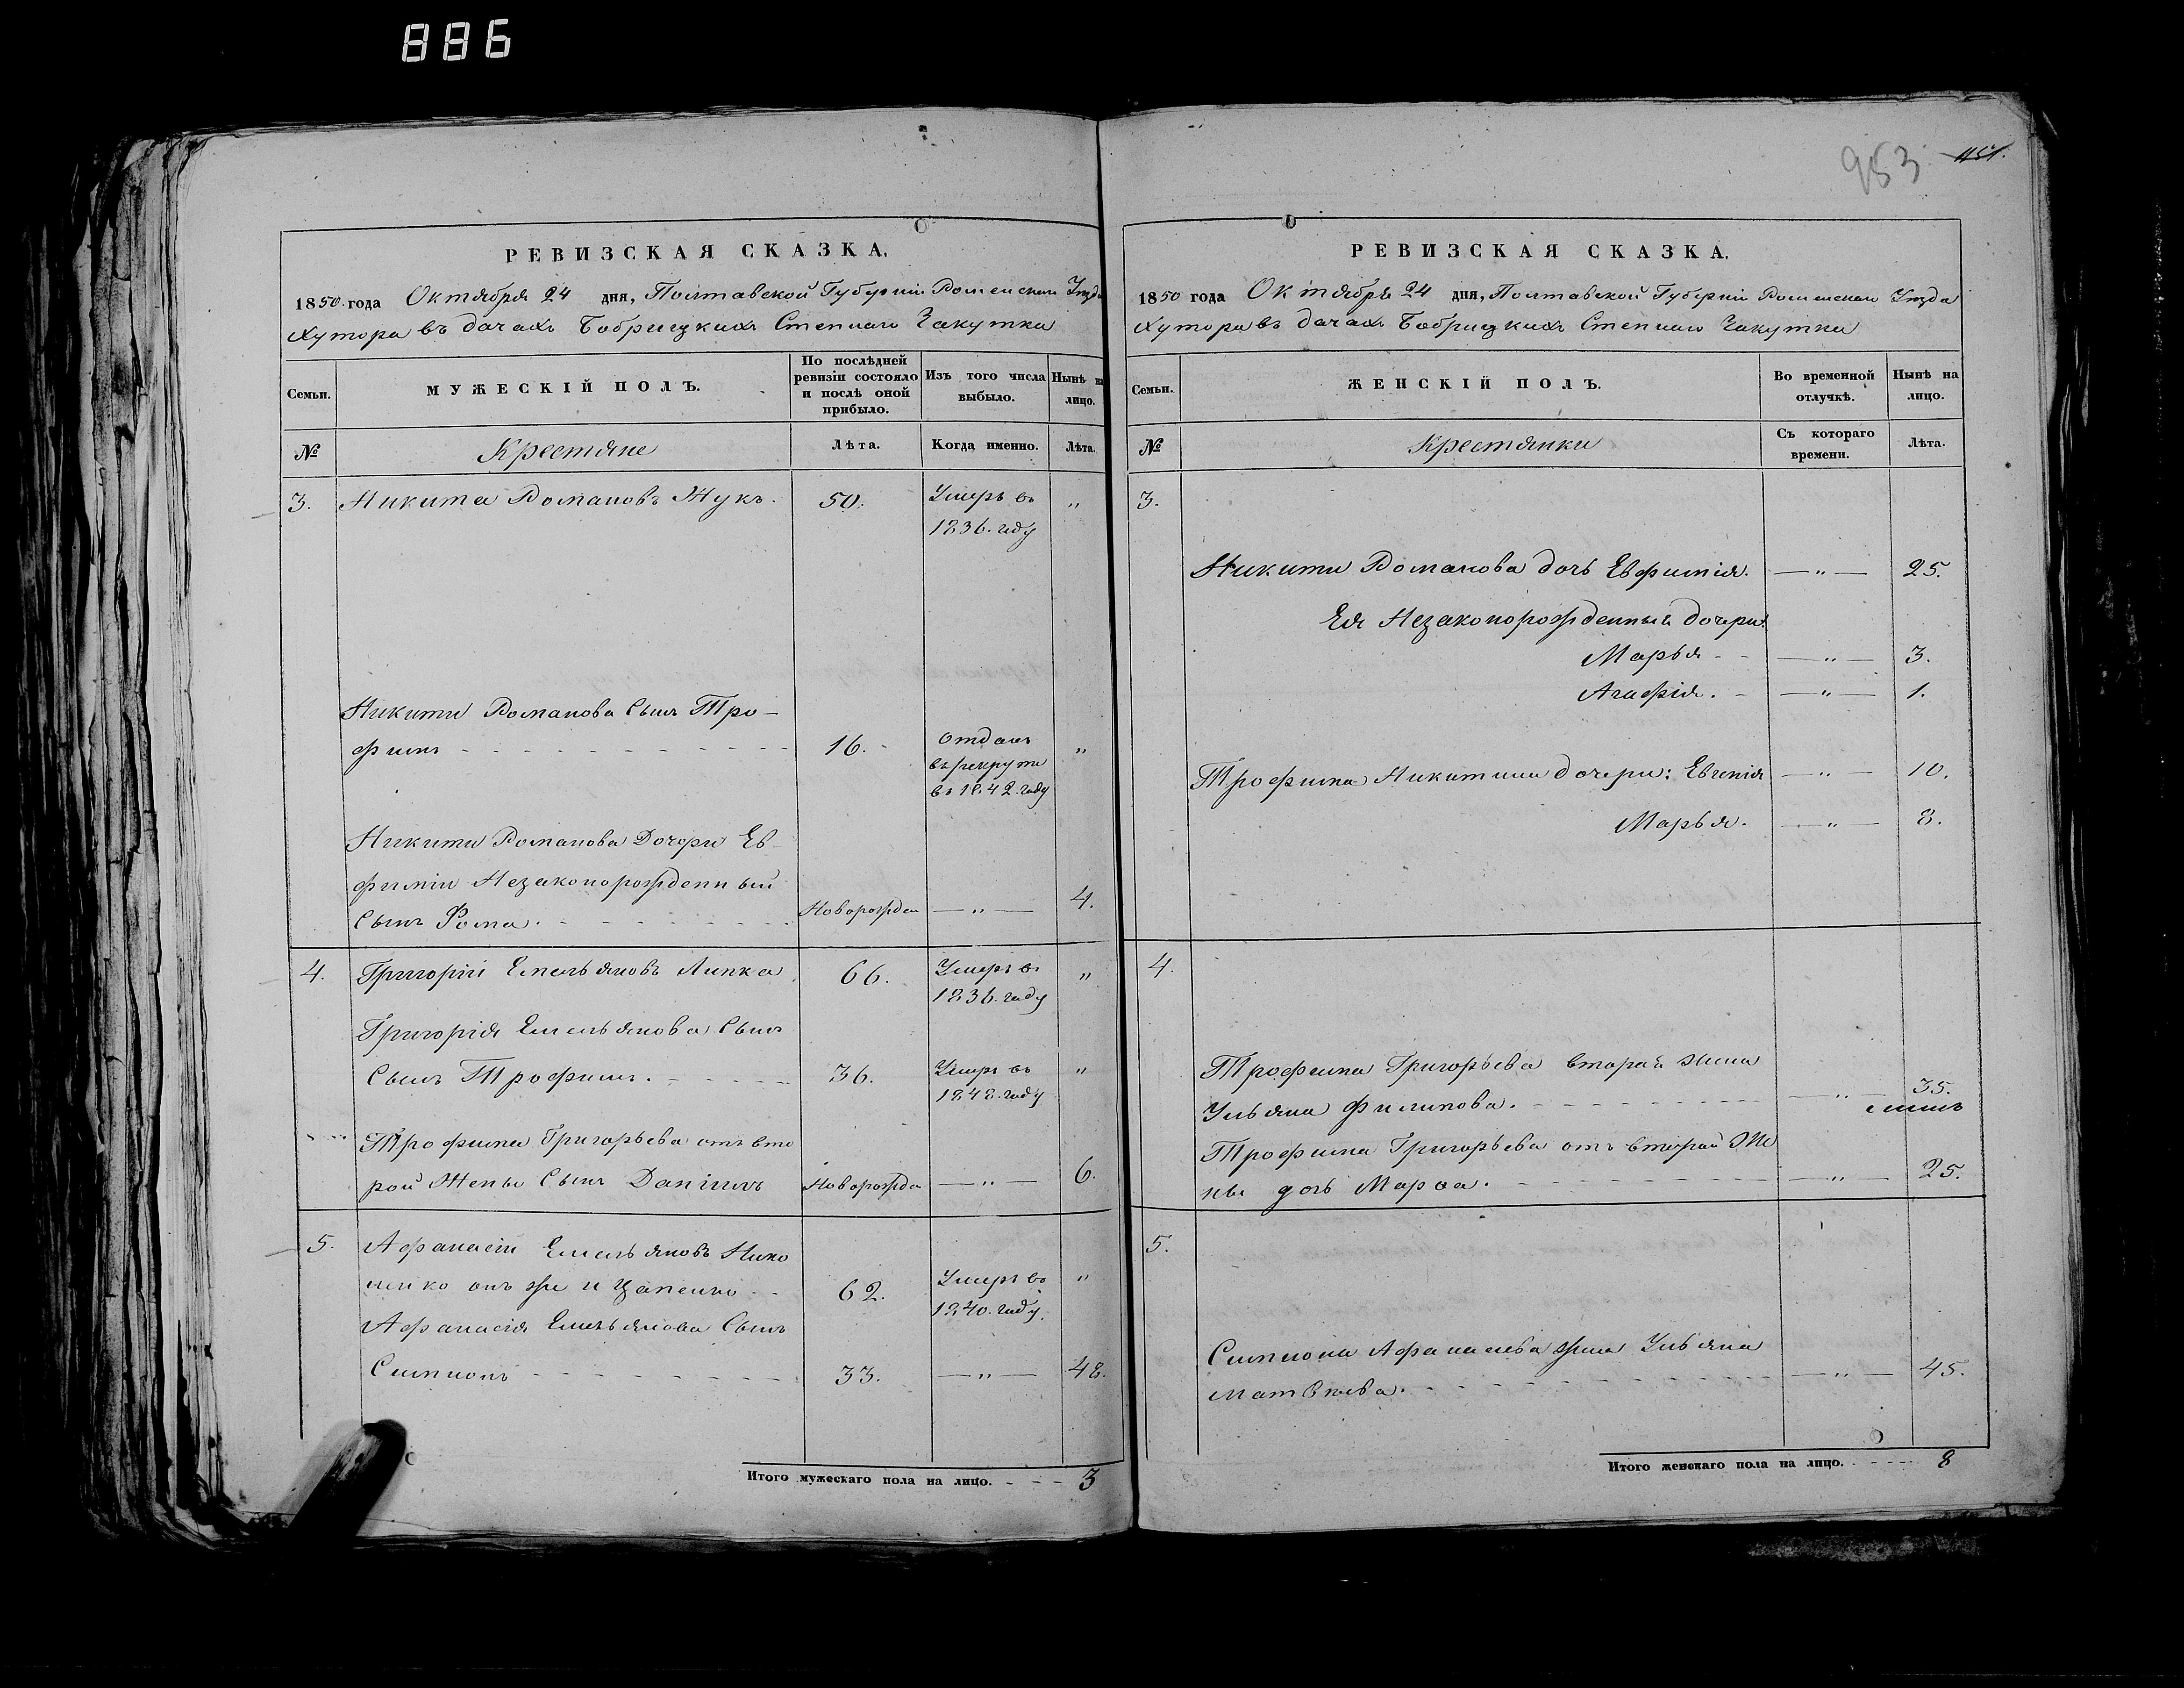 886
953 1151.
РЕВИЗСКАЯ СКАЗКА.
1850 года Октября 24 дня, Полтавской Губерніи Роменскаго Уезда
Хутора въ дачахъ Бобрицкихъ Степнаго Чакутки
Семьи.
МУЖЕСКІЙ ПОЛЪ.
По послѣдней ревизіи состояло и послѣ оной прибыло.
Изъ того числа выбыло.
Нынѣ на лицо.
№
Крестяне
Лѣта.
Когда именно.
Лѣта.
3. Никита Романовъ Жукъ. 50. Умеръ въ „
1836. году
Никиты Романова Сынъ Тро-
фимъ 16. отданъ „
въ рекруты
въ 1842. году
Никиты Романова Дочери Ев-
фиміи Незаконорожденный
Сынъ Фома. Новорожден —„— 4.
4. Григорій Емельяновъ Липка 66. Умеръ въ „
1836. году
Григорія Емельянова Сынъ
Сынъ Трофимъ. 36. Умеръ въ „
1848. году
Трофима Григорьева отъ вто
рой Жены Сынъ Даніилъ Новорожде —„— 6.
5. Афанасій Емельяновъ Нико
ленко онъ же и Цапенко 62. Умеръ въ „
1840. году.
Афанасія Емельянова Сынъ
Симионъ 33. —„— 48.
Итого мужескаго пола на лицо. 3
РЕВИЗСКАЯ СКАЗКА.
1850 года Октября 24 дня, Полтавской Губерніи Роменскаго Уезда
Хутора въ дачахъ Бобрицкихъ Степнаго Чакутки
Семьи.
ЖЕНСКІЙ ПОЛЪ.
Во временной отлучкѣ.
Нынѣ на лицо.
№
Крестянки
Съ котораго времени.
Лѣта.
3.
Никиты Романова дочь Евфимія. —„— 25.
Ея Незаконорожденныя дочери:
Марья —„— 3.
Агафія. —„— 1.
Трофима Никитина дочери: Евгенія —„— 10.
Марья. —„— 8.
4.
Трофима Григорьева вторая жена
Ульяна Филипова. —„— 35.
Трофима Григорьева отъ второй Же
ны дочь Марѳа. —„— 25.
5.
Симиона Афанасьева жена Ульяна
Матвѣева. —„— 45.
Итого женскаго пола на лицо. 8